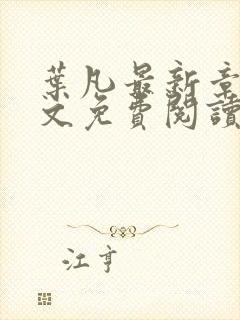 葉凡最新章
文免費閱讀
江亨